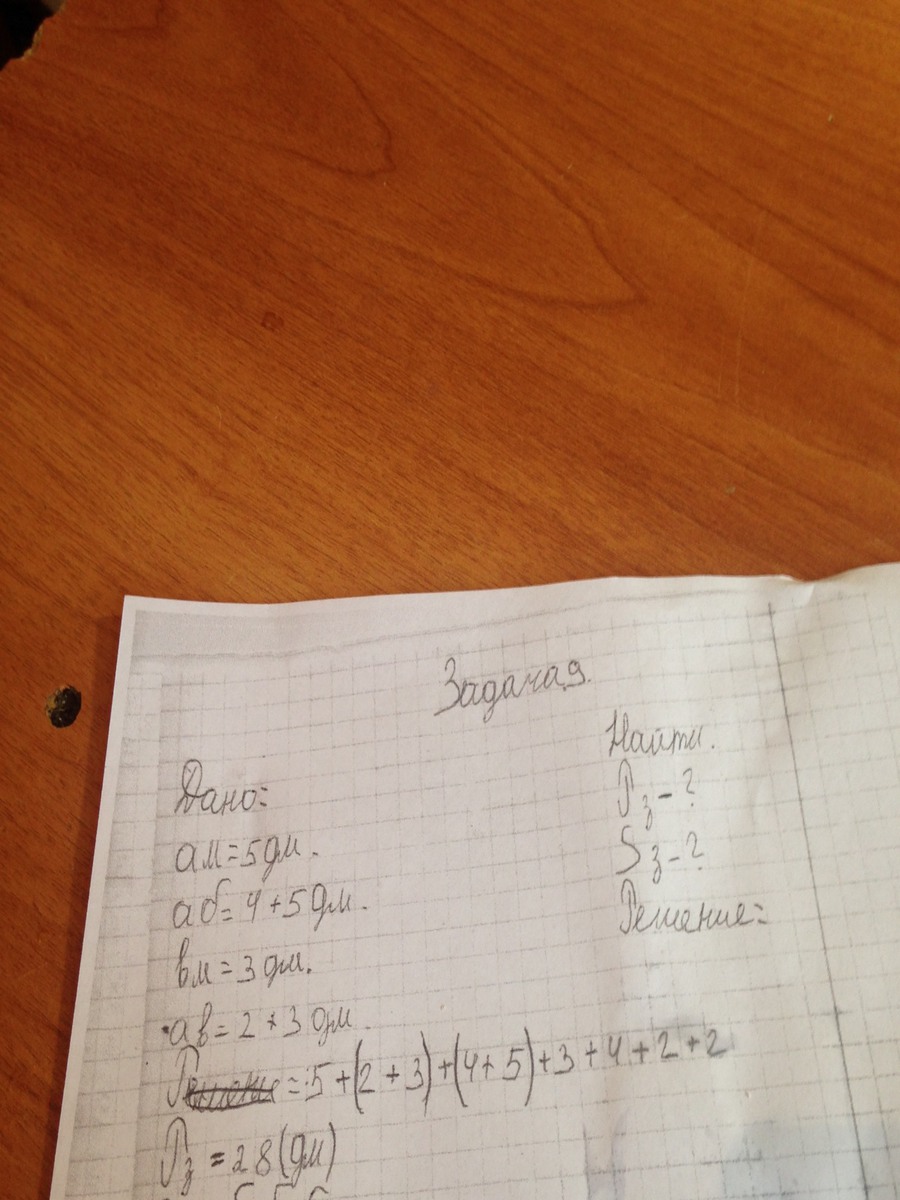 Задача 9.
Дано:
ам = 5 дм.
аб = 4 + 5 дм.
вм = 3 дм.
ав = 2 + 3 дм.
Найти.
Pз - ?
Sз - ?
Решение:
P = 5 + (2 + 3) + (4 + 5) + 3 + 4 + 2 + 2
Pз = 28 (дм)